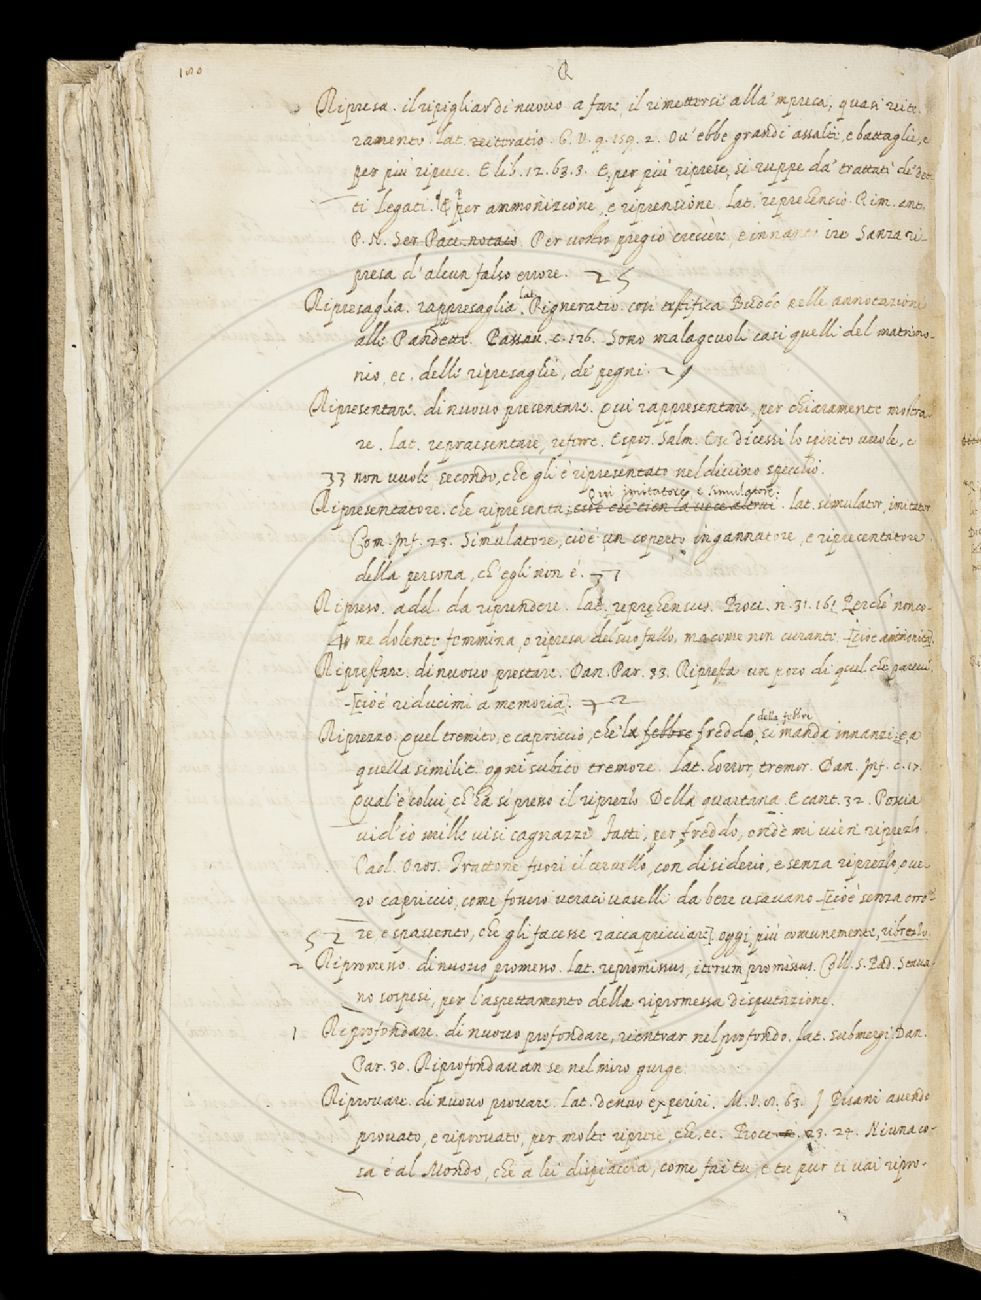 180
R
Ripresa. il ripigliar di nuovo a fare, il rimettersi alla 'mpresa, quasi reite-
ramento. lat. reiteratio. G. V. 9. 159. 2. Ou' ebbe grandi assalti, e battaglie, e
per più riprese. E lib. 12. 63. 3. E per più riprese, si ruppe da' trattati de' det-
ti Legati. E per ammonizione, e riprensione. Lat. reprehensio. Rim. ant.
P. N. Ser Pace notaio Per vostro pregio crescere, e innanti ire Sanza ri-
presa d' alcun falso errore. 25
Ripresaglia. rappresaglia. lat. Pigneratio. così testifica Budeo nelle annotazioni
alle Pandette. Passau. c. 126. Sono malagevoli casi quelli del matrimo-
nio, ec. delle ripresaglie, de' pegni.
Ripresentare. di nuovo presentare. Qui rappresentare, per chiaramente mostra-
re. Lat. repraesentare, referre. Espos. Salm. E se dicessi lo spirito vuole, e
33 non vuole, secondo, che gli è ripresentato nel divino specchio.
Qui imitatore, e simulatore.
Ripresentatore. che ripresenta, cioè che tien la vece altrui. lat. simulator, imitator
Com. Inf. 23. Simulatore, cioè un coperto ingannatore, e ripresentatore
della persona, ch' egli non è.
Ripreso. add. da riprendere. Lat. reprehensus. Bocc. n. 31. 16. Perchè non co-
me dolente femmina, o ripresa del suo fallo, ma come non curante. [cioè ammonita].
Riprestare. di nuovo prestare. Dan. Par. 33. Ripresta un poco di quel che parevi
[cioè riducimi a memoria].
della febbre
Riprezzo. Quel tremito, e capriccio, che la febbre fredda, si manda innanzi: e a
quella similit. ogni subito tremore. Lat. horror, tremor. Dan. Inf. c. 17.
Qual' è colui, c' ha sì presso il riprezzo Della quartana. E cant. 32. Poscia
vid' io mille visi cagnazzi Fatti, per freddo, onde mi vien riprezzo.
Paol. Oros. Trattone fuori il cervello, con disiderio, e senza riprezzo, ove-
ro capriccio, come fovero veraci vaselli da bere usavano [cioè senza orro-
52 re, e spavento, che gli facesse raccapricciare]. oggi, più comunemente, ribrezzo.
Ripromesso. di nuovo promesso. Lat. repromissus, iterum promissus. Coll. S. Pad. Stava-
no sospesi, per l' aspettamento della ripromessa disputazione.
1. Riprofondare. di nuovo profondare, rientrar nel profondo. lat. submergi. Dan.
Par. 30. Riprofondavan se nel miro gurge.
Riprovare. di nuovo provare. Lat. denuo experiri. M. V. 8. 63. I Pisani avendo
provato, e riprovato, per molte riprese, che, ec. Bocc. n. 23. 24. Niuna co-
sa è al Mondo, che a lei dispiaccia, come fai tu, e tu pur ti vai ripro-